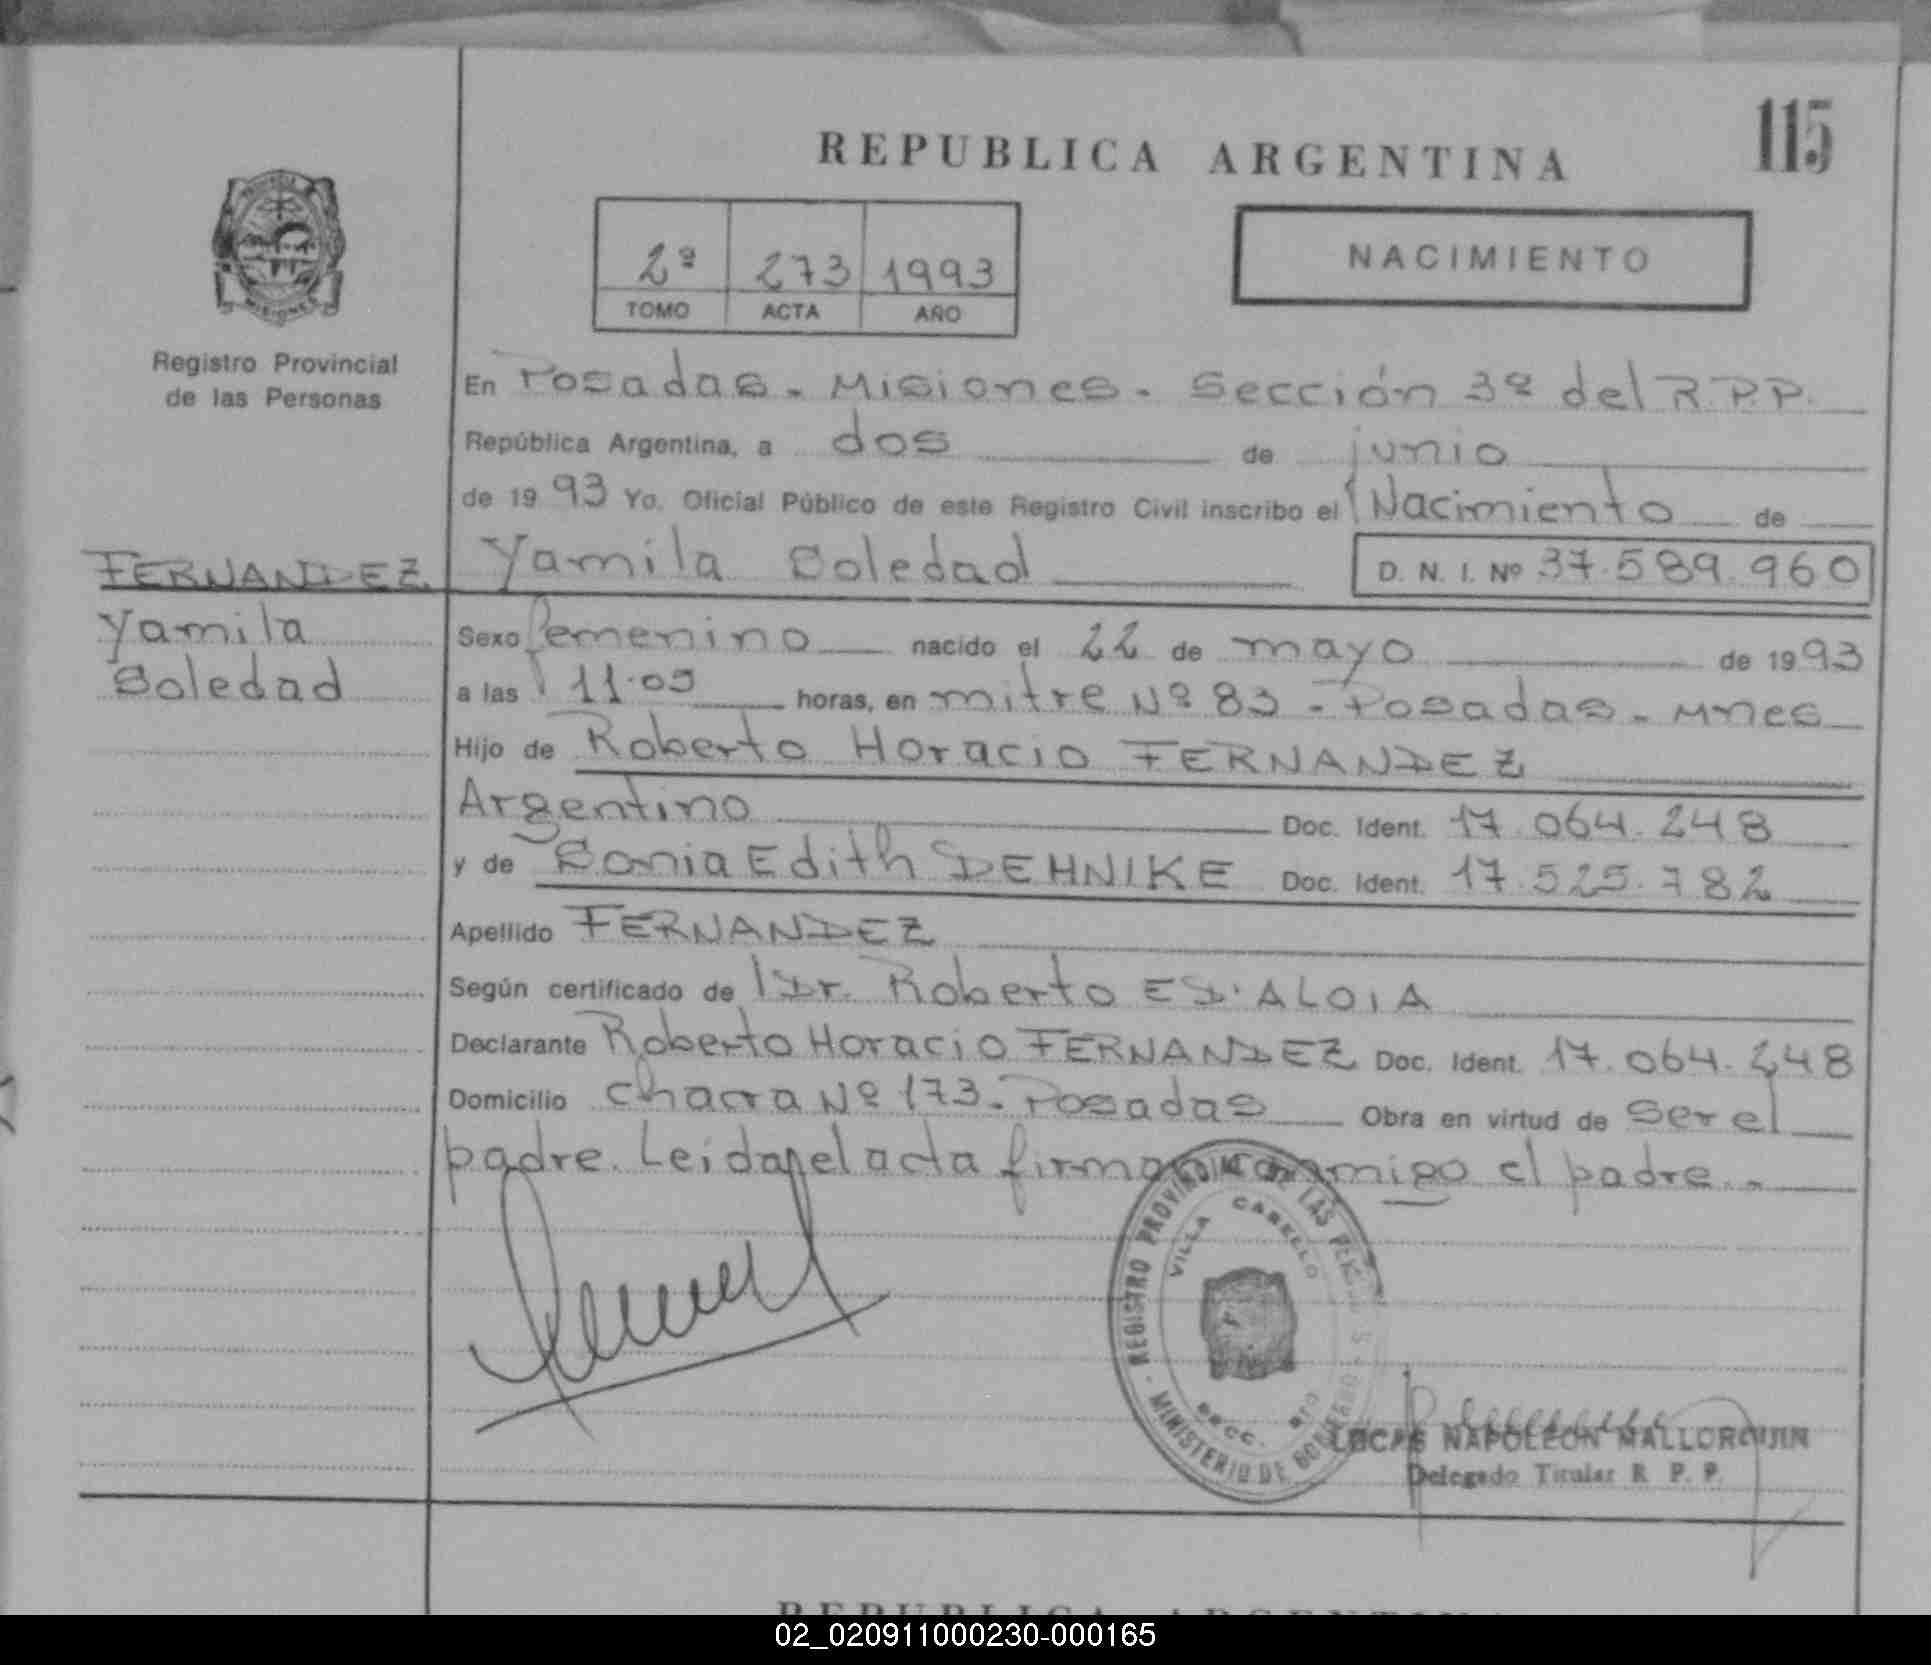 115
REPUBLICA ARGENTINA
2º 273 1993
TOMO ACTA AÑO
NACIMIENTO
PROVINCIA
MISIONES
Registro Provincial
de las Personas
En Posadas - Misiones - Sección 3º del R.P.P.
República Argentina, a dos de junio
de 1993 Yo, Oficial Público de este Registro Civil inscribo el Nacimiento de
FERNANDEZ
Yamila
Soledad
Yamila Soledad D. N. I. Nº 37.589.960
Sexo femenino nacido el 22 de mayo de 1993
a las 11.05 horas, en mitre Nº 83 - Posadas - Mnes
Hijo de Roberto Horacio FERNANDEZ
Argentino Doc. Ident. 17.064.248
y de Sonia Edith DEHNIKE Doc. Ident. 17.525.782
Apellido FERNANDEZ
Según certificado de Dr. Roberto E D'ALOIA
Declarante Roberto Horacio FERNANDEZ Doc. Ident. 17.064.248
Domicilio Chacra Nº 173 - Posadas Obra en virtud de ser el
padre. Leida el acta firma conmigo el padre.-
REGISTRO PROVINCIAL DE LAS PERSONAS - MINISTERIO DE GOBIERNO
VILLA CABELLO
LUCAS NAPOLEON MALLORQUIN
Delegado Titular R P. P.
REPUBLICA ARGENTINA
02_020911000230-000165